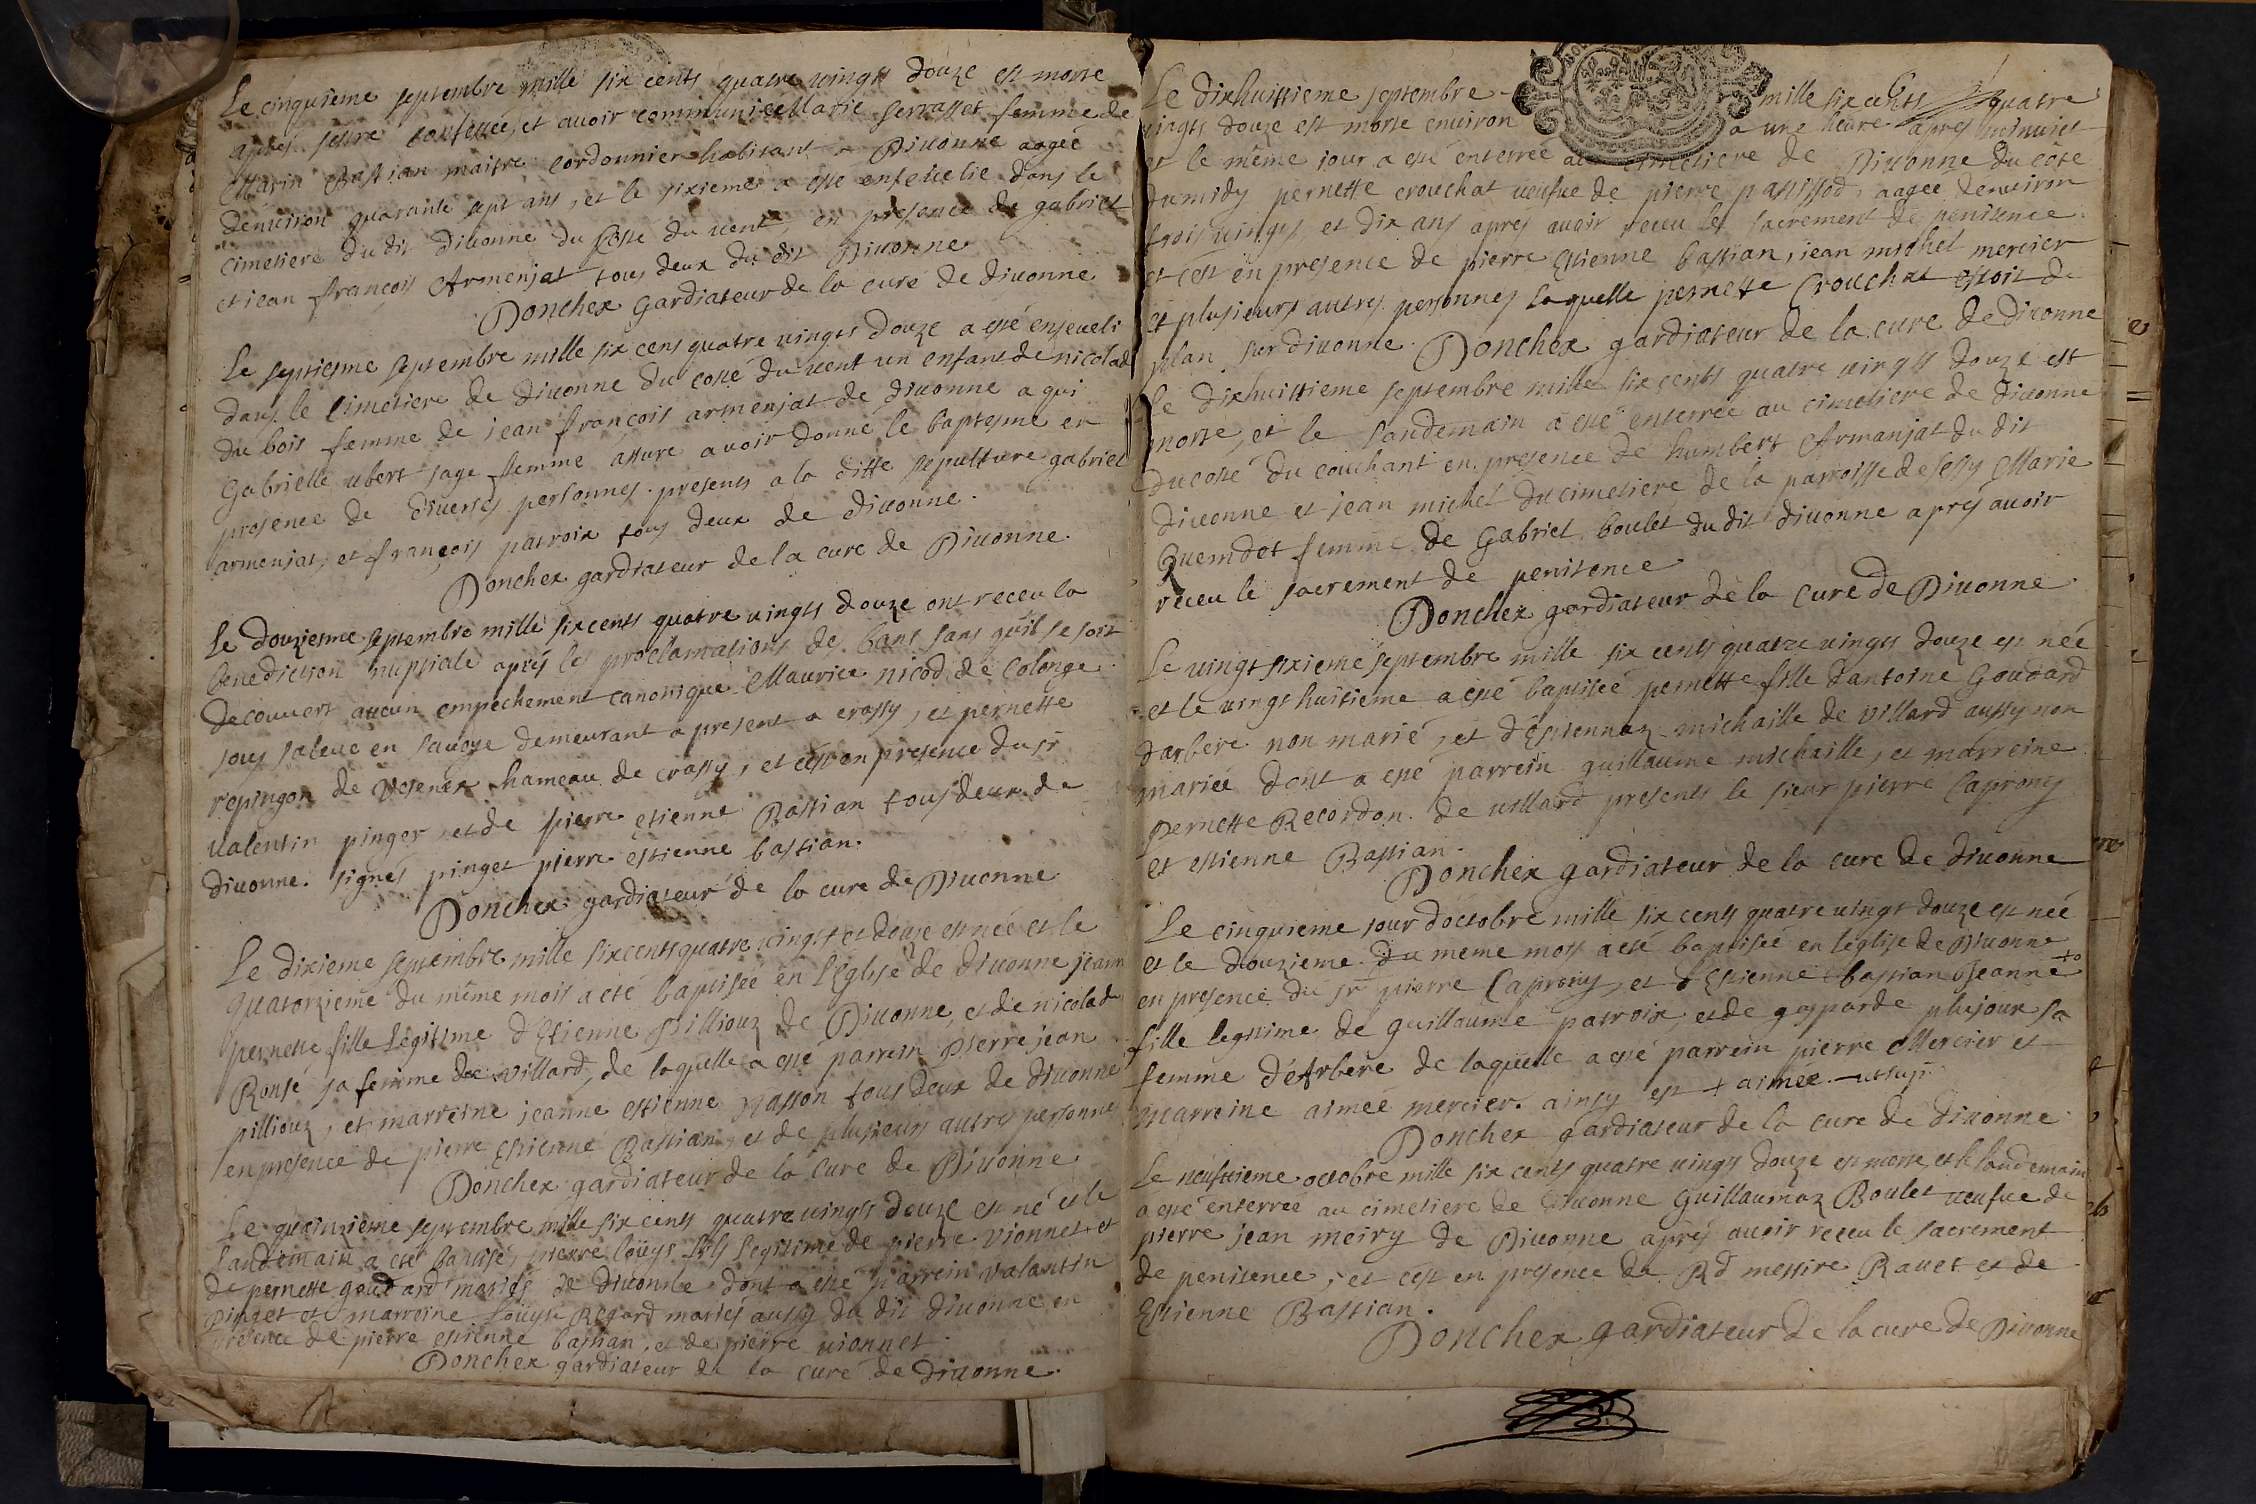 Le cinquieme septembre mille six cents quatre vingts douze est morte
apres s'estre confessée, et avoir communiée Marie serrasset femme de
Marin Bastian maitre cordonnier habitant a Divonne aagée
denviron quarante sept ans, et le sixieme a esté ensevelie dans le
cimetiere du dit divonne du costé du vent, en presence de gabriel
et jean françois Armenjat tous deux du dit Divonne
Donchex gardiateur de la cure de divonne
Le septiesme septembre mille six cens quatre vingts douze a esté enseveli
dans le cimetiere de divonne du costé du vent un enfant de nicolade
du bois femme de jean françois armenjat de divonne a qui
Gabrielle ubert sage femme assure avoir donné le baptesme en
presence de diverses personnes. presents a la ditte sepulture gabriel
armenjat, et françois patroix tous deux de divonne.
Donchex gardiateur de la cure de Divonne.
Le douziesme septembre mille six cents quatre vingts douze ont receu la
benediction nuptiale aprés les proclamations de bans sans qu'il se soit
decouvert aucun empechement canonique Maurice nicod de Colonge
sous saleve en savoye demeurant a present a crassy, et pernette
repingon de Vesenex hameau de crassy, et c'est en presence du sr
valentin pinget et de pierre etienne Bastian tous deux de
divonne. signés pinget pierre estienne bastian.
Donchex gardiateur de la cure de Divonne
Le dixieme septembre mille six cents quatre vingts et douze est née et le
quatorzieme du même mois a eté baptisée en l'Eglise de divonne jeann
pernette fille legitime d'Etienne Pilliouz de Divonne, et de nicolade
Ronse sa femme de villard, de laquelle a esté parrein pierre jean
pilliouz, et marreine jeanne estienne Masson tous deux de divonne
en presence de pierre Estienne Bastian, et de plusieurs autres personnes
Donchex gardiateur de la cure de Divonne
Le quinzieme septembre mille six cents quatre vingts douze est né et le
landemain a eté batisé, pierre loüys fils legitime de pierre vionnet et
de pernette goudard mariés de divonne dont a esté parrein valantin
pinget et marreine loüyse Regard mariés aussy du dit divonne en
presence de pierre estienne bastian, et de pierre vionnet.
Donchex gardiateur de la cure de divonne.
Le dixhuittieme septembre mille six cents quatre
vingts douze est morte environ a une heure apres minuict
et le même jour a esté enterrée au cimetiere de Divonne du côté
du midy pernette crouchat veufve de pierre passissod, aagée denviron
trois vingts et dix ans apres avoir receu le sacrement de penitence
et c'est en presence de pierre Estienne bastian, jean michel mercier
et plusieurs autres personnes laquelle pernette Crouchat estoit de
plan sur divonne. Donchex gardiateur de la cure de divonne
Le dixhuittieme septembre mille six cents quatre vingts douze est
morte, et le landemain a esté enterrée au cimetiere de divonne
du costé du couchant en presence de humbert Armanjat du dit
divonne et jean michel du cimetiere de la parroisse de sessy Marie
Quemdet femme de Gabriel boulet du dit divonne aprés avoir
receu le sacrement de penitence
Donchex gardiateur de la cure de Divonne.
Le vingt sixieme septembre mille six cents quatre vingts douze est née
et le vingt huitieme a esté baptisée pernette fille d'antoine Goudard
d'arbere non marié, et d'Estiennaz michaille de villard aussy non
mariée dont a esté parrein guillaume michaille, et marreine
pernette Recordon de villard presents le sieur pierre Caprony
et estienne Bastian.
Donchex gardiateur de la cure de divonne
Le cinquieme jour doctobre mille six cents quatre vingt douze est née
et le douzieme du meme mois a eté baptisée en l'eglise de Divonne
en presence du sr pierre Caprony, et d'Estienne bastian Jeanne +
fille legitime de guillaume patroix, et de gasparde plujoux sa
femme d'Arbere de laquelle a esté parrein pierre Mercier et
marreine aimée mercier. ainsy est + aimée
Donchex gardiateur de la cure de divonne
Le neufvieme octobre mille six cents quatre vingts douze est morte, et le landemain
a esté enterrée au cimetiere de divonne Guillaumaz Boulet veufve de
pierre jean meiry de Divonne aprés avoir receu le sacrement
de penitence, et c'est en presence de Rd messire Ravet et de
Estienne Bastian.
Donchex gardiateur de la cure de Divonne